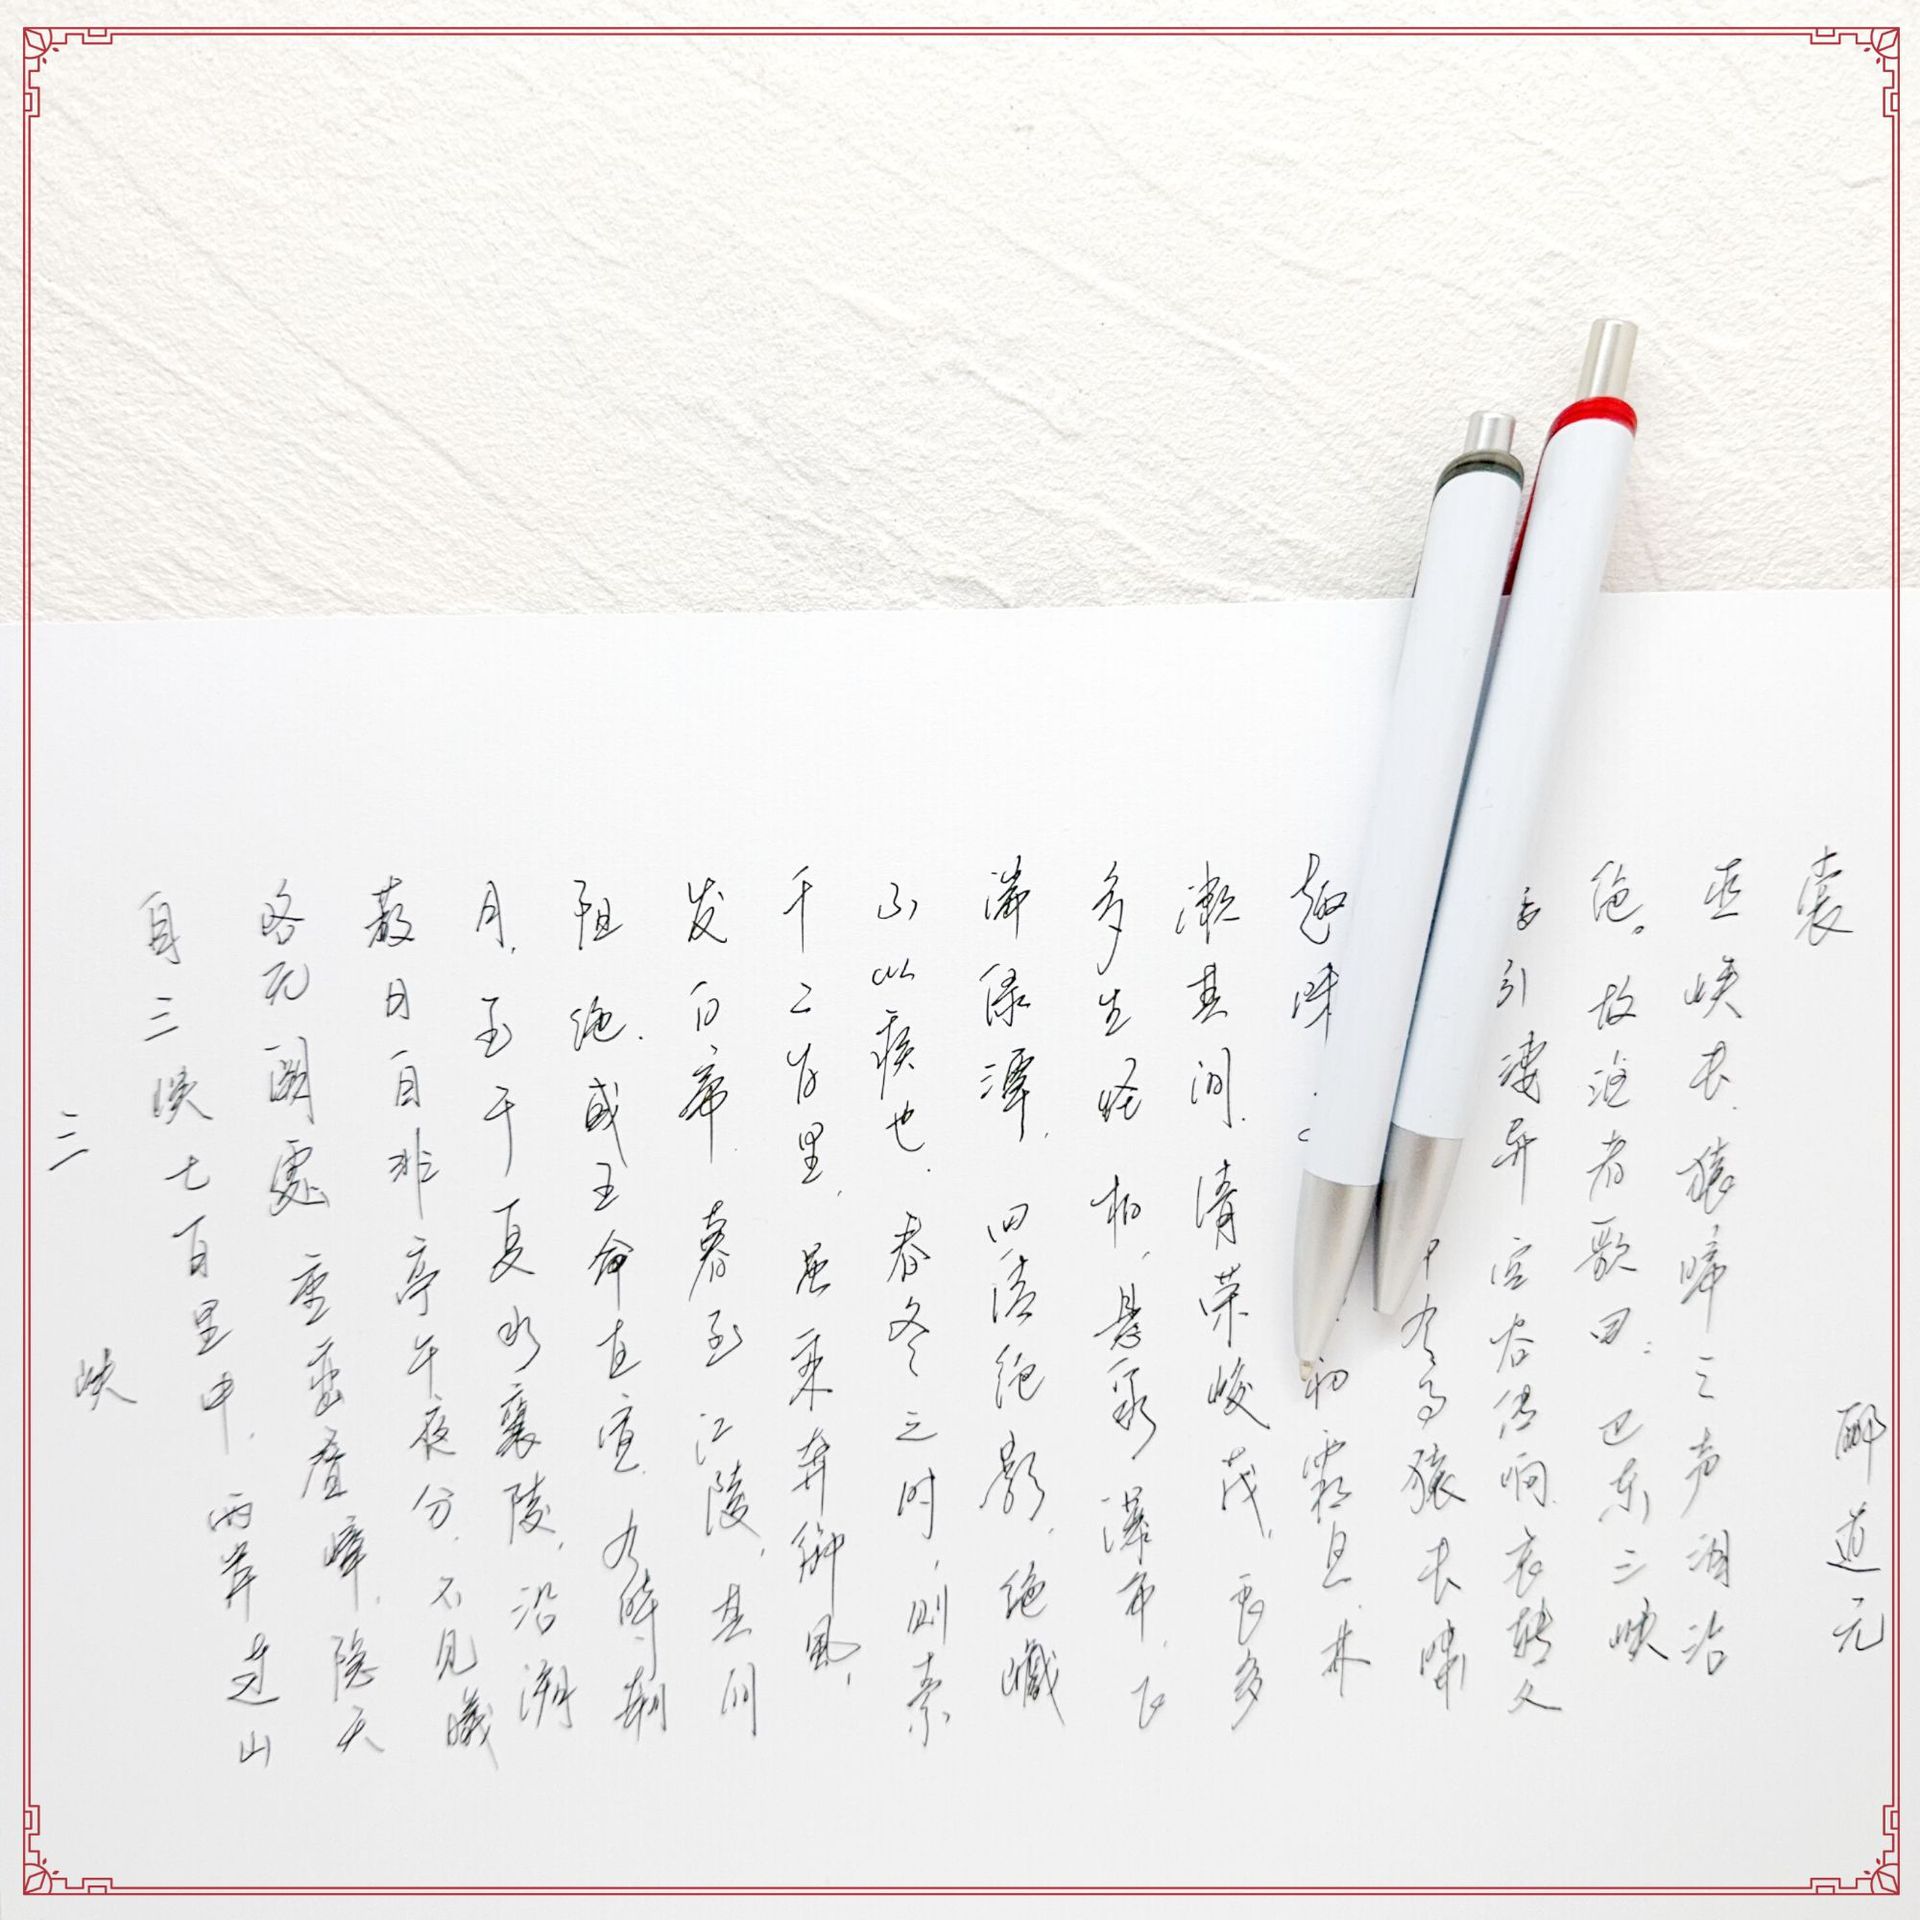 三峡
自三峡七百里中,两岸连山
略无阙處 重峦叠嶂,隐天
蔽日 自非亭午夜分,不见曦
月,至于夏水襄陵,沿溯
阻绝,或王命急宣,有时朝
发白帝,暮至江陵,其间
千二百里,虽乘奔御风,
不以疾也,春冬之时,则素
湍绿潭,回清绝影,绝巘
多生怪柏,悬泉瀑布,飞
漱其间,清荣峻茂,良多
趣味 初霜旦,林
有高猿长啸
引凄异 空谷传响,哀转久
绝。故渔者歌曰:巴东三峡
巫峡长,猿啼三声泪沾
裳
郦道元